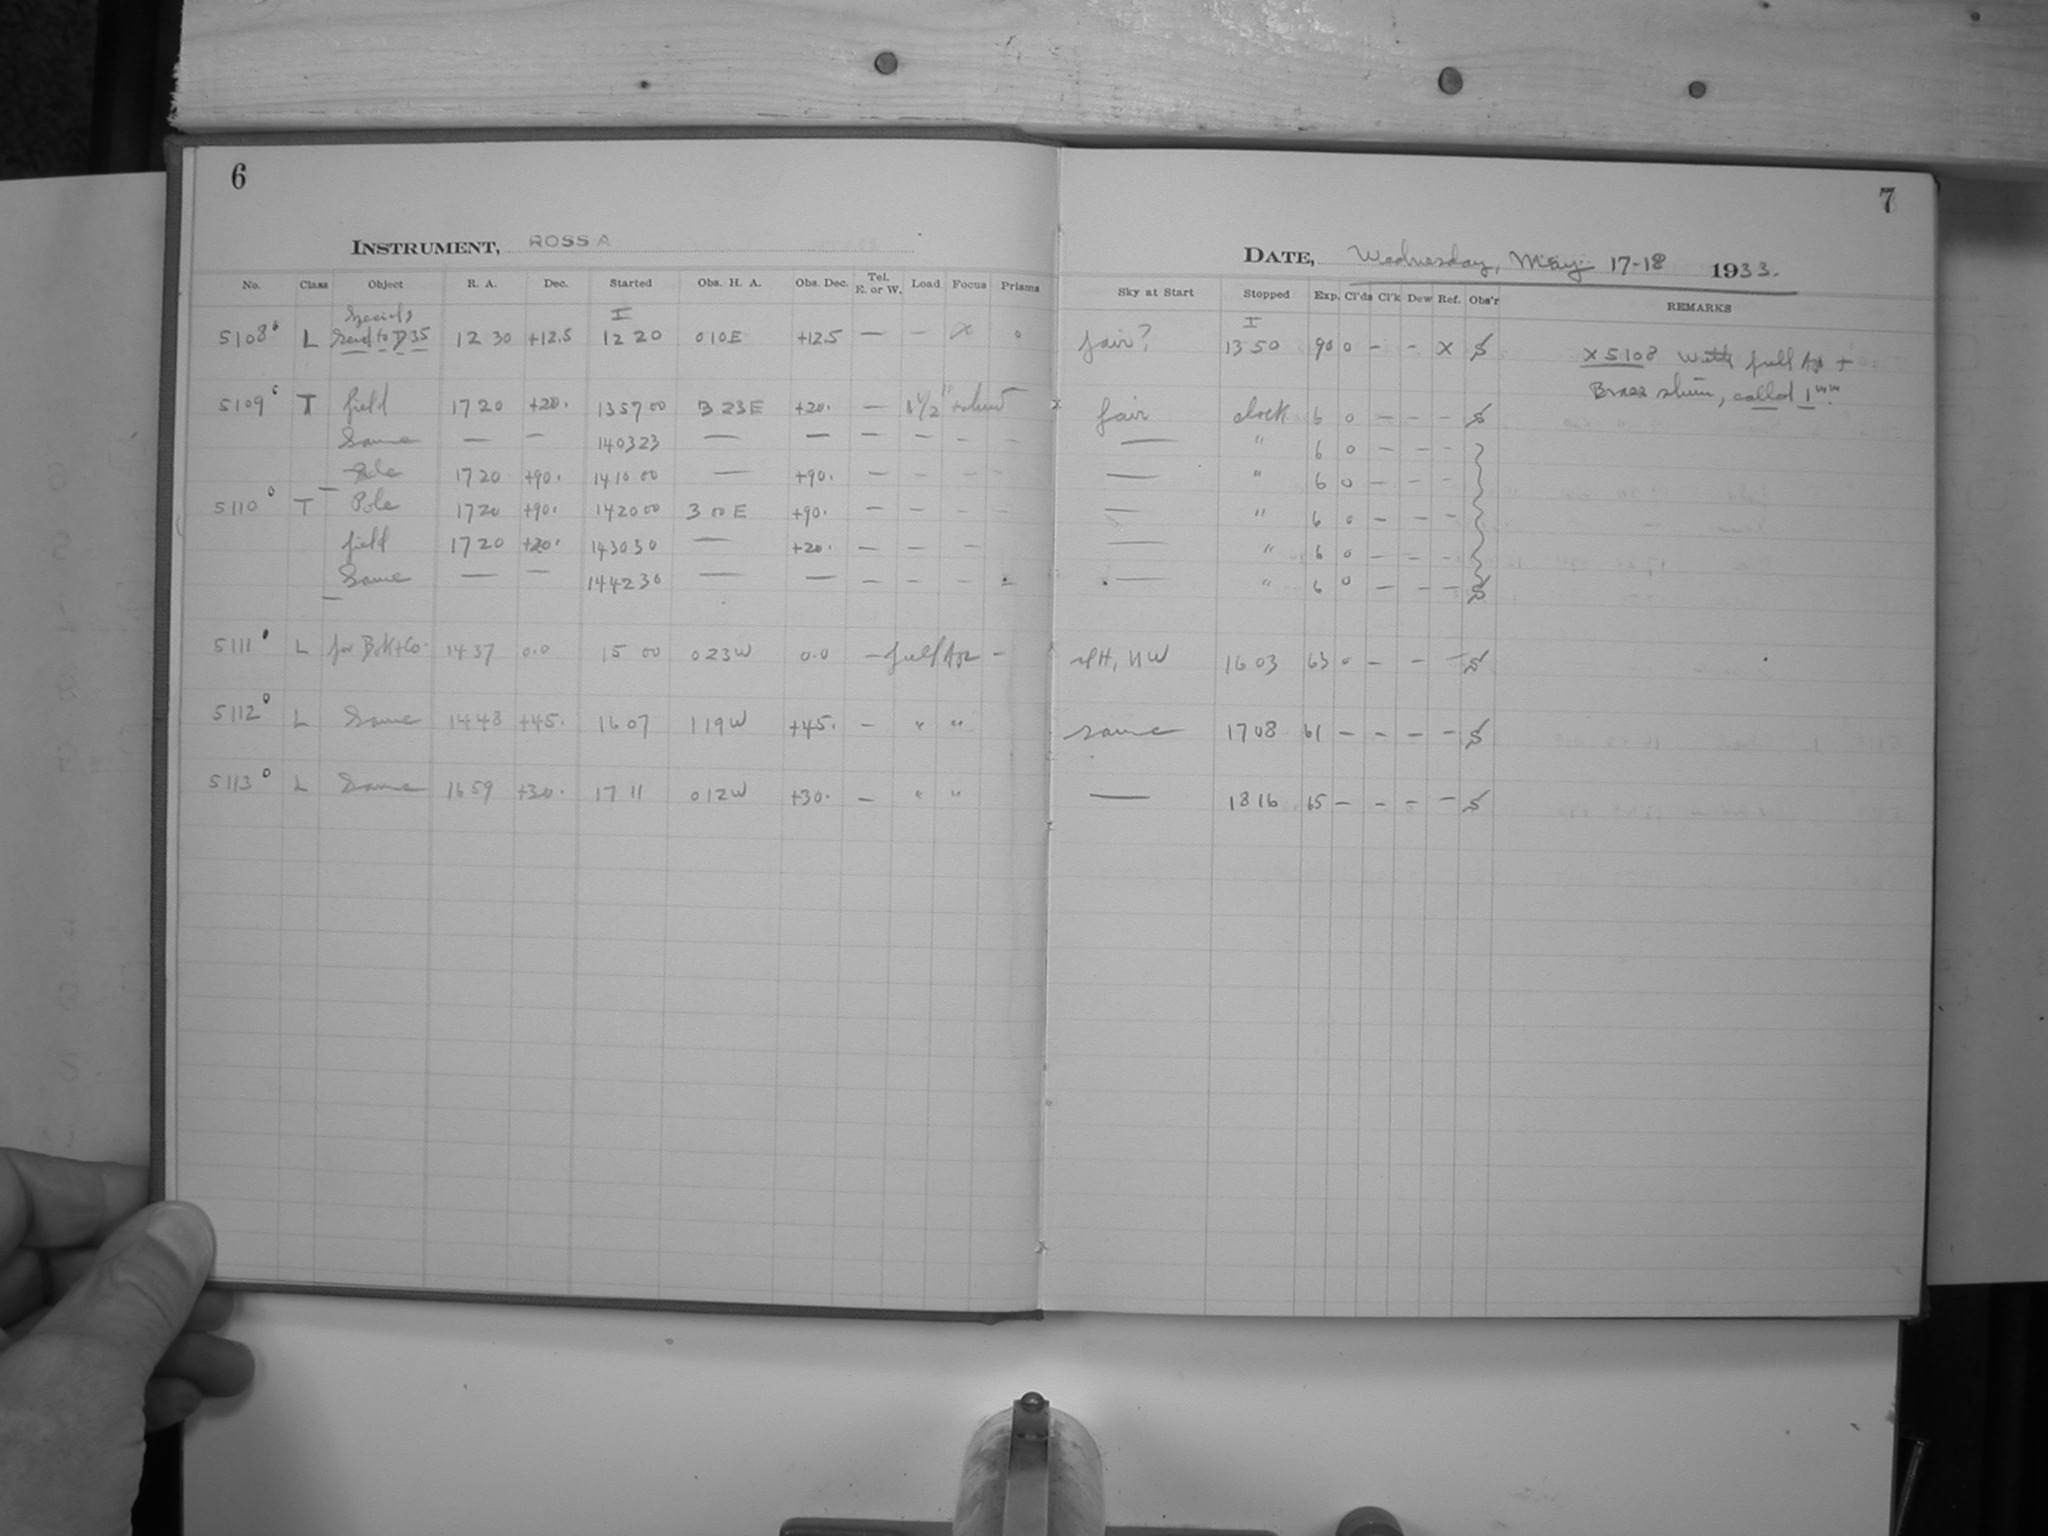 6
7
INSTRUMENT, ROSS A
DATE, Wednesday, May 17-18 1933.
No. Class Object R. A. Dec. Started Obs. H. A. Obs. Dec. Tel. E. or W. Load Focus Prisms Sky at Start Stopped Exp. Cl'ds Cl'k Dew Ref. Obs'r REMARKS
I I
5108 L Send to D35 12 30 +12.5 12 20 0 10 E +12.5 — — x 0 fair? 13 50 90 0 — — x S x 5108 with full Ap +
Brass shim, called 1mm
5109 T field 17 20 +20. 13 57 00 3 23 E +20. — 1 1/2" fair clock 6 0 — — — S
Same — — 14 03 23 — — — — — — — " 6 0 — — —
Pole 17 20 +90. 14 10 00 — +90. — — — — — " 6 0 — — —
5110 T Pole 17 20 +90. 14 20 00 3 00 E +90. — — — — — " 6 0 — — —
field 17 20 +20. 14 30 30 — +20. — — — — " 6 0 — — —
Same — — 14 42 30 — — — — — — — " 6 0 — — — S
5111 L for Bok+Co. 14 37 0.0 15 00 0 23 W 0.0 — full Ap — NW 16 03 63 0 — — — S
5112 L Same 14 48 +45. 16 07 1 19 W +45. — " " same 17 08 61 — — — — S
5113 L Same 16 59 +30. 17 11 0 12 W +30. — " " — 18 16 65 — — — — S